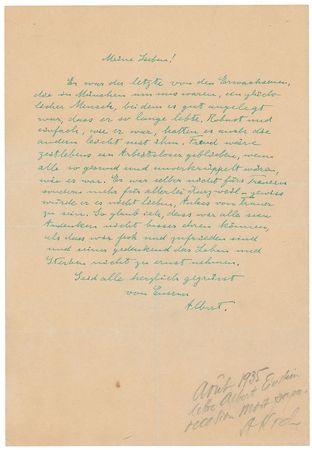 Meine Lieben!
Er war der letzte von den Erwachsenen,
die in München um uns waren, ein glück-
licher Mensch, bei dem es gut angelegt
war, dass er so lange lebte. Robust und
einfach, wie er war, hatten es auch die
andern leicht mit ihm. Freud wäre
zeitlebens ein Arbeitsloser geblieben, wenn
alle so gesund und unverkrüppelt wären,
wie er war. Er war selber nicht fürs Trauern
sondern mehr für allerlei Kurzweil - gewiss
würde er es nicht lieben, Anlass von Trauer
zu sein. So glaub ich, dass wir alle sein
Andenken nicht besser ehren können,
als dass wir froh und zufrieden sind
und seiner gedenkend das Leben und
Sterben nicht zu ernst nehmen.
Seid alle herzlich gegrüsst
von Eurem
Albert.
Août 1935
Albert Einstein
occasion mort